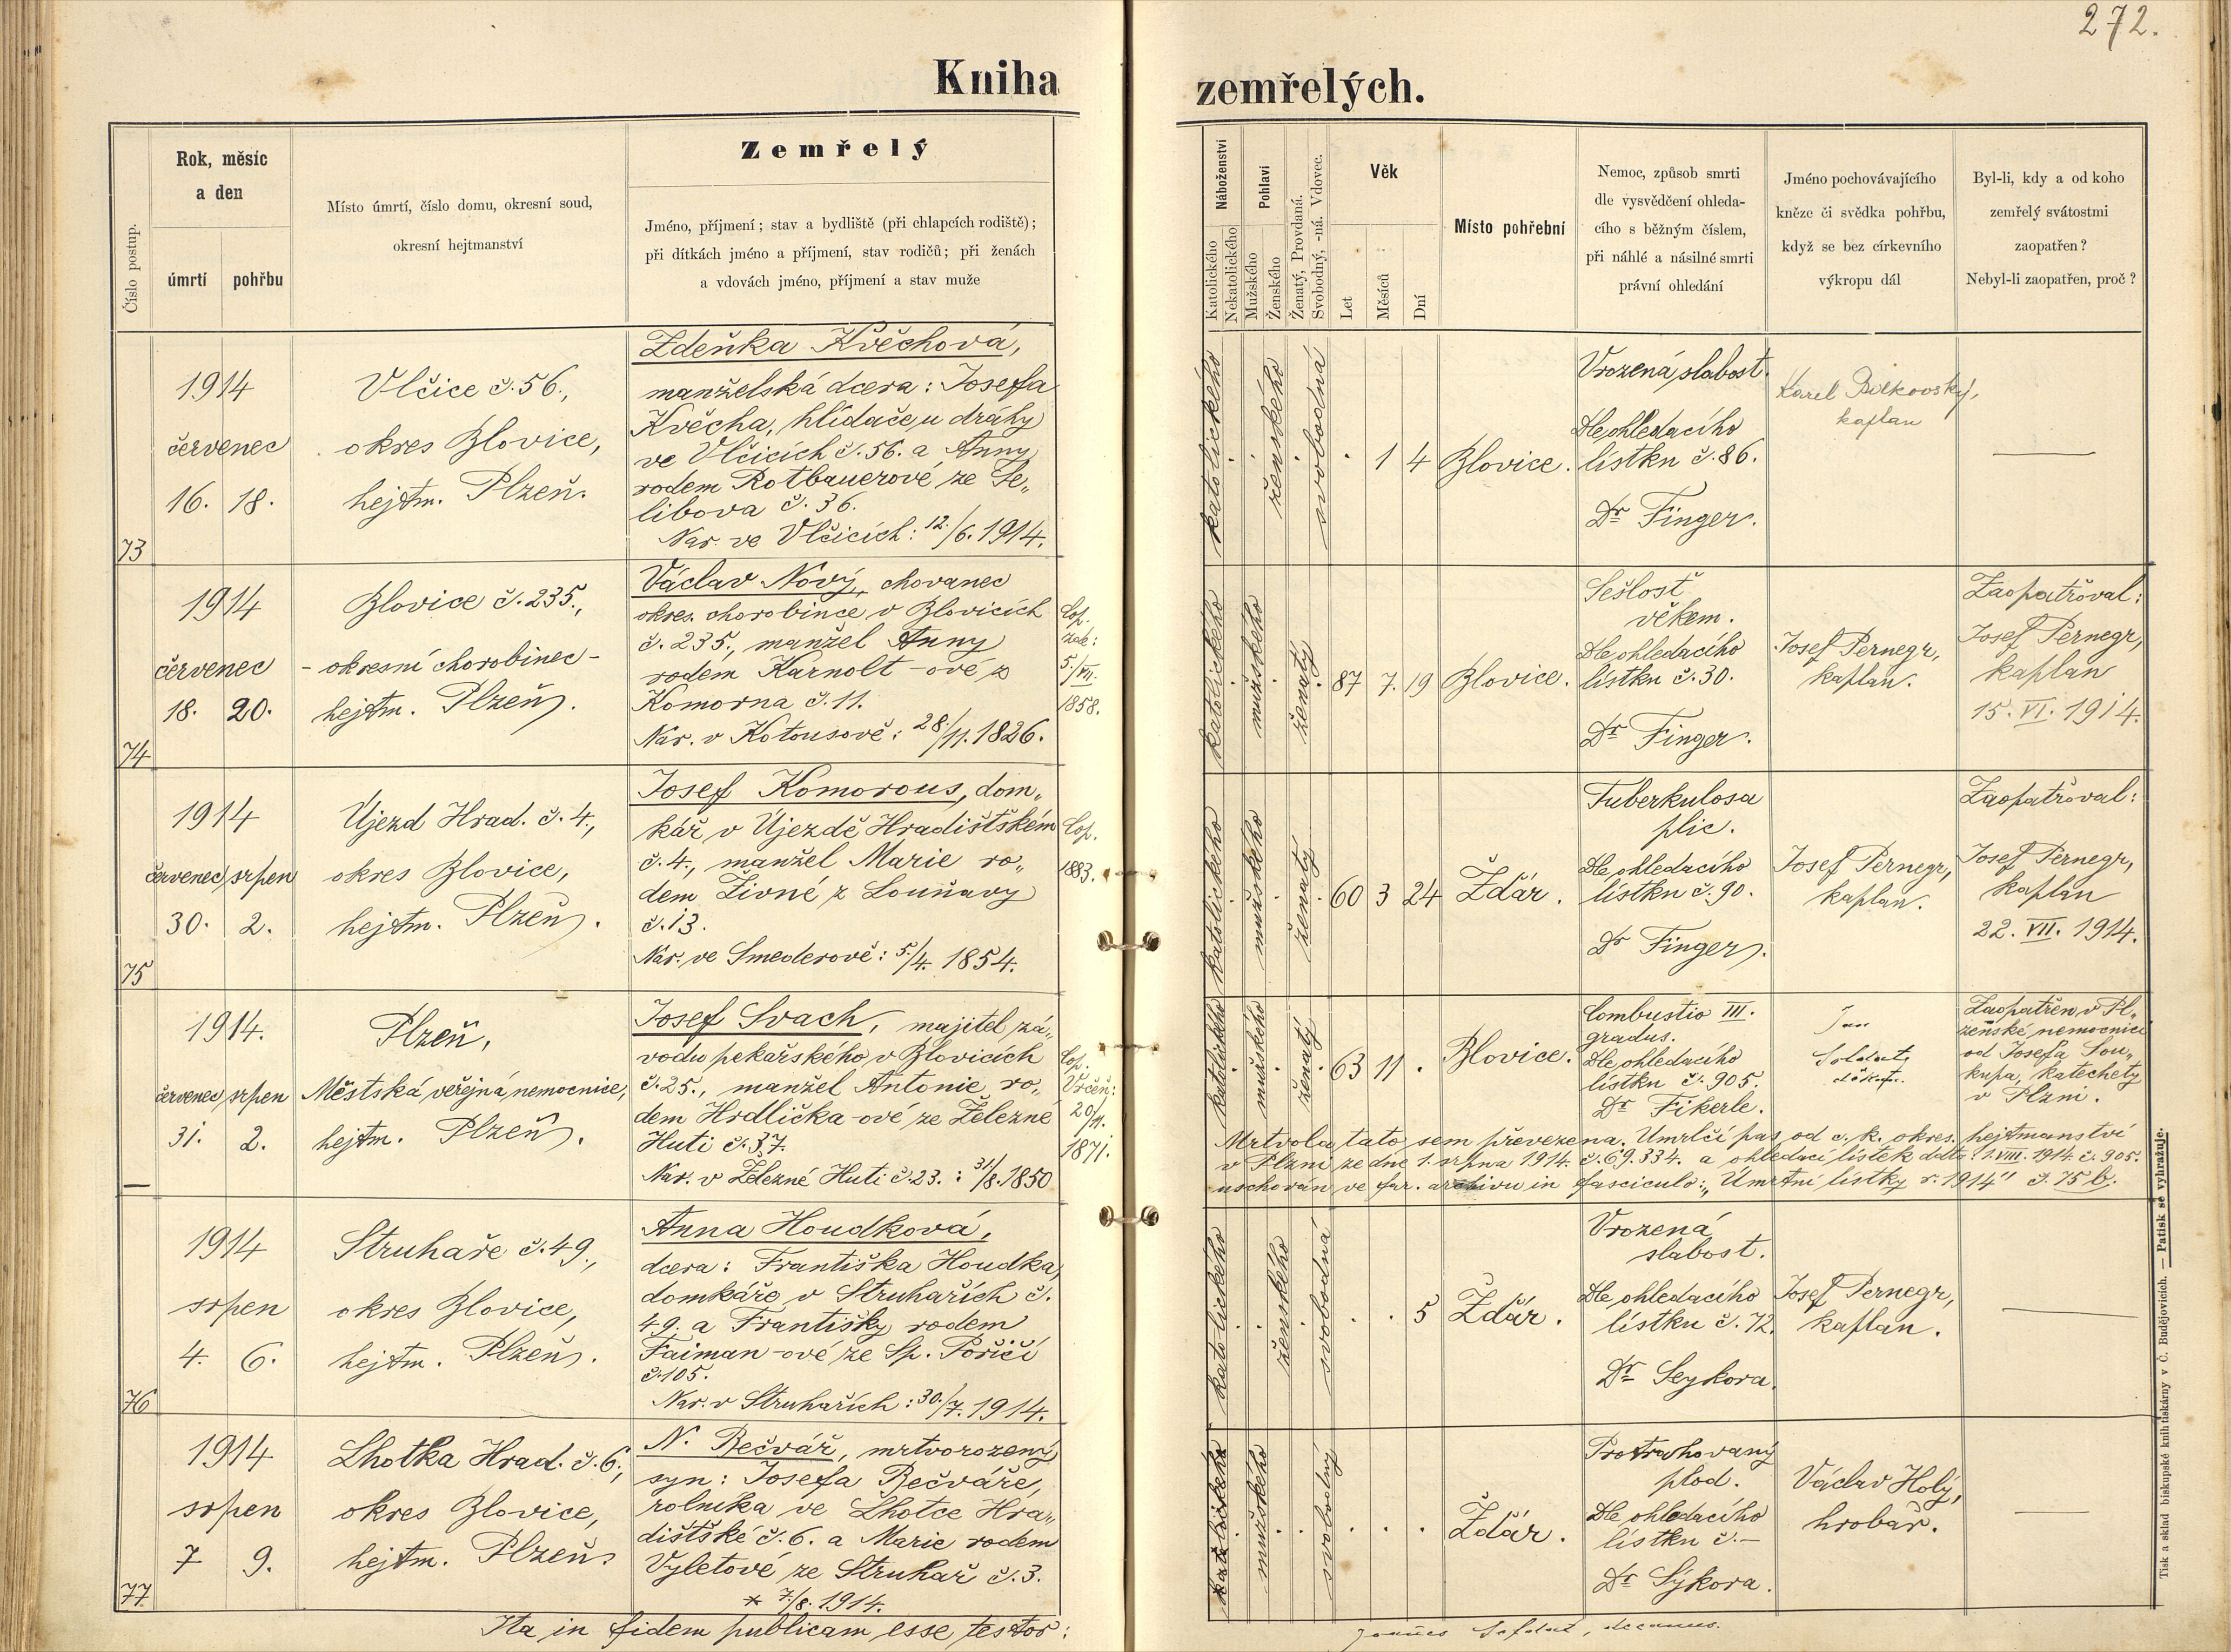 272.
Kniha zemřelých.
Číslo postup.
Rok, měsíc
a den
úmrtí
pohřbu
Místo úmrtí, číslo domu, okresní soud,
okresní hejtmanství
Zemřelý
Jméno, příjmení; stav a bydliště (při chlapcích rodiště);
při dítkách jméno a příjmení, stav rodičů; při ženách
a vdovách jméno, příjmení a stav muže
Náboženství
Katolického
Nekatolického
Pohlaví
Mužského
Ženského
Ženatý, Provdaná.
Svobodný, -ná. Vdovec.
Věk
Let
Měsíců
Dní
Místo pohřební
Nemoc, způsob smrti
dle vysvědčení ohleda-
cího s běžným číslem,
při náhlé a násilné smrti
právní ohledání
Jméno pochovávajícího
kněze či svědka pohřbu,
když se bez církevního
výkropu dál
Byl-li, kdy a od koho
zemřelý svátostmi
zaopatřen?
Nebyl-li zaopatřen, proč?
73
1914
červenec
16. 18.
Vlčice č. 56.,
okres Blovice,
hejtm. Plzeň.
Zdeňka Kvěchová,
manželská dcera: Josefa
Kvěcha, hlídače u dráhy
ve Vlčicích č. 56. a Anny
rodem Rotbauerové ze Še„
libova č. 36.
Nar. ve Vlčicích: 12./6. 1914.
katolického
ženského
svobodná
. 1 4
Blovice.
Vrozená slabost.
Dle ohledacího
lístku č. 86.
Dr Finger.
Karel
kaplan
—
74
1914
červenec
18. 20.
Blovice č. 235.,
- okresní chorobinec -
hejtm. Plzeň.
Václav Nový, chovanec
okres. chorobince v Blovicích
č. 235., manžel Anny
rodem Karnolt-ové z
Komorna č. 11.
Nar. v Kotousově: 28./11. 1826.
Cop.
5./VII.
1858.
katolického
mužského
ženatý
87 7. 19
Blovice.
Sešlosť
věkem.
Dle ohledacího
lístku č. 30.
Dr Finger.
Josef Pernegr,
kaplan.
Zaopatřoval:
Josef Pernegr,
kaplan
15. VI. 1914.
75
1914
červenec srpen
30. 2.
Újezd Hrad. č. 4.,
okres Blovice,
hejtm. Plzeň.
Josef Komorous, dom„
kář v Újezdě Hradištském
č. 4., manžel Marie ro„
dem Živné z Louňavy
č. 13.
Nar. ve Smederově: 5./4. 1854.
Cop.
1883.
katolického
mužského
ženatý
60 3 24
Ždár.
Tuberkulosa
plic.
Dle ohledacího
lístku č. 90.
Dr Finger.
Josef Pernegr,
kaplan.
Zaopatřoval:
Josef Pernegr,
kaplan
22. VII. 1914.
—
1914.
červenec srpen
31. 2.
Plzeň,
Městská veřejná nemocnice,
hejtm. Plzeň.
Josef Svach, majitel zá„
vodu pekařského v Blovicích
č. 25., manžel Antonie ro„
dem Hrdlička-ové ze Železné
Huti č. 37.
Nar. v Železné Huti č. 23.: 31./8. 1850
Cop.
Vrčeň:
20/11.
1871.
katolického
mužského
ženatý
63 11 .
Blovice.
Combustio III.
gradus.
Dle ohledacího
lístku č. 905.
Dr Fikerle.
Jan
děkan.
Zaopatřen v Pl„
zeňské nemocnici
od Josefa Sou„
kupa, katechety
v Plzni.
Mrtvola tato sem převezena. Umrlčí pas od c. k. okres. hejtmanství
v Plzni ze dne 1. srpna 1914. č. 69.334. a ohledací lístek dtto 1. VIII. 1914. č. 905.
uschován ve far. archivu in fasciculo: „Úmrtní lístky r. 1914" č. 75 b.
76
1914
srpen
4. 6.
Struhaře č. 49.,
okres Blovice,
hejtm. Plzeň.
Anna Houdková,
dcera: Františka Houdka,
domkáře v Struhařích č.
49. a Františky rodem
Faiman-ové ze Sp. Poříčí
č. 105.
Nar. v Struhařích: 30./7. 1914.
katolického
ženského
svobodná
. . 5
Ždár.
Vrozená
slabost.
Dle ohledacího
lístku č. 72.
Dr Seykora.
Josef Pernegr,
kaplan.
—
77
1914
srpen
7 9.
Lhotka Hrad. č. 6.,
okres Blovice,
hejtm. Plzeň.
N. Bečvář, mrtvorozený
syn: Josefa Bečváře,
rolníka ve Lhotce Hra„
dištské č. 6. a Marie rodem
Vyletové ze Struhař č. 3.
* 7./8. 1914.
katolického
mužského
svobodný
. . .
Ždár.
Protrahovaný
plod.
Dle ohledacího
lístku č. —
Dr Sýkora.
Václav Holý,
hrobař.
—
Ita in fidem publicam esse, testor:
decanus.
Tisk a sklad biskupské knihtiskárny v Č. Budějovicích. — Patisk se vyhražuje.